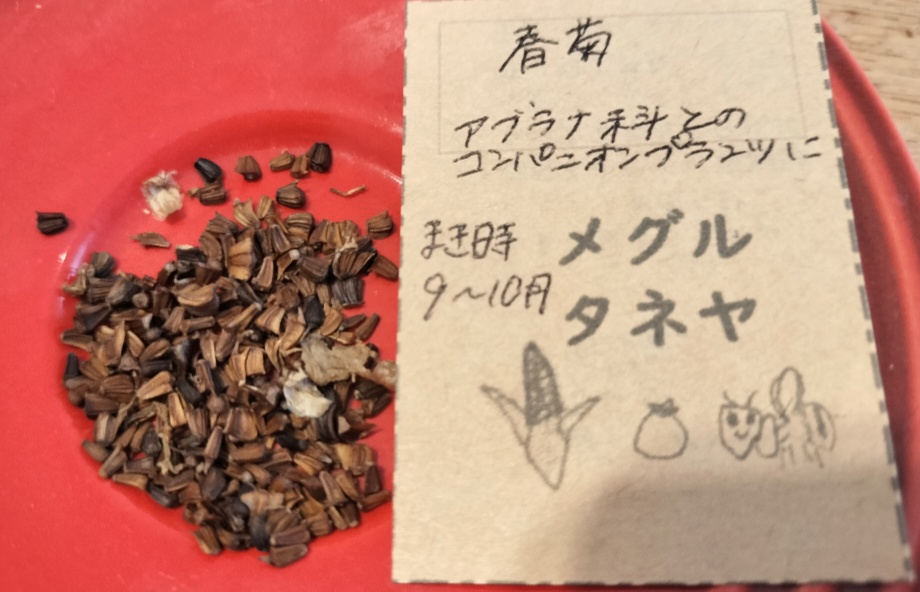 春菊
アブラナ科との
コンパニオンプランツに
まき時
9〜10月
メグル
タネヤ